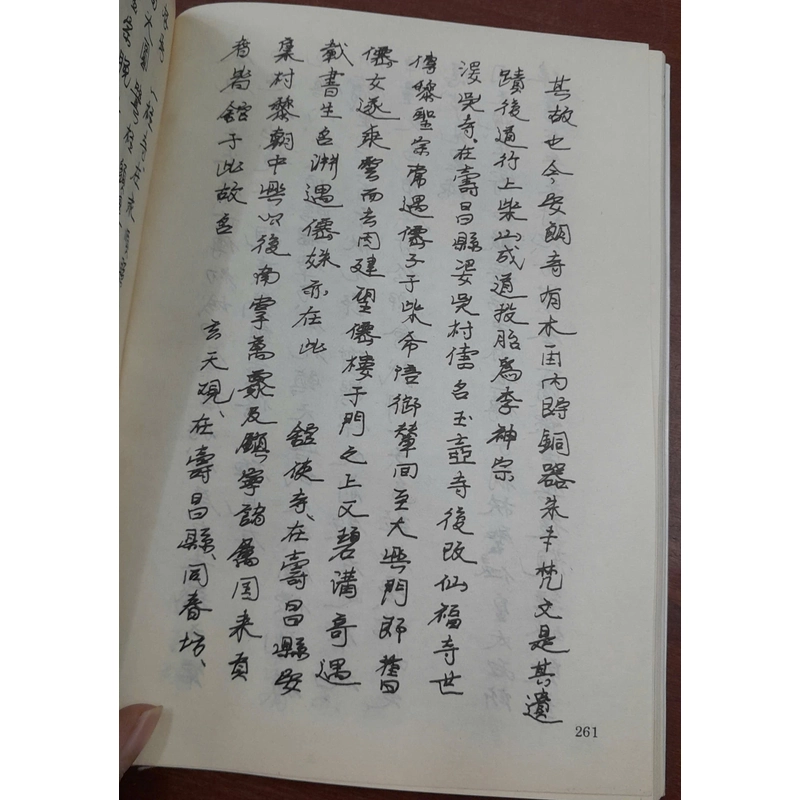 其故也今安朗寺有木匣內貯銅器朱字梵文是其遺
蹟後道行上柴山成道投胎爲李神宗
婆吳寺、在壽昌縣婆吳村舊名玉壺寺後改仙福寺世
傳黎聖宗常遇僊子于柴希陪御輦間至大興門即
僊女遂乘雲而去因建望僊樓于門之上又碧溝奇遇
載書生名淵遇僊妹亦在此 舘使寺、在壽昌縣安
集村黎朝中興以後南掌萬象及鎮寧諸蠻國來貢
者皆舘于此故名 玄天觀、在壽昌縣、同春坊、
261